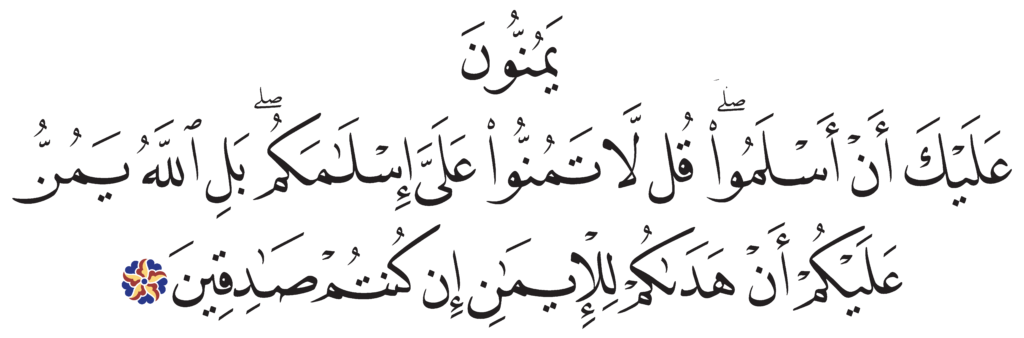 يَمُنُّونَ
عَلَيْكَ أَنْ أَسْلَمُوا۟ۖ قُل لَّا تَمُنُّوا۟ عَلَىَّ إِسْلَـٰمَكُمۖ بَلِ ٱللَّهُ يَمُنُّ
عَلَيْكُمْ أَنْ هَدَىٰكُمْ لِلْإِيمَـٰنِ إِن كُنتُمْ صَـٰدِقِينَ